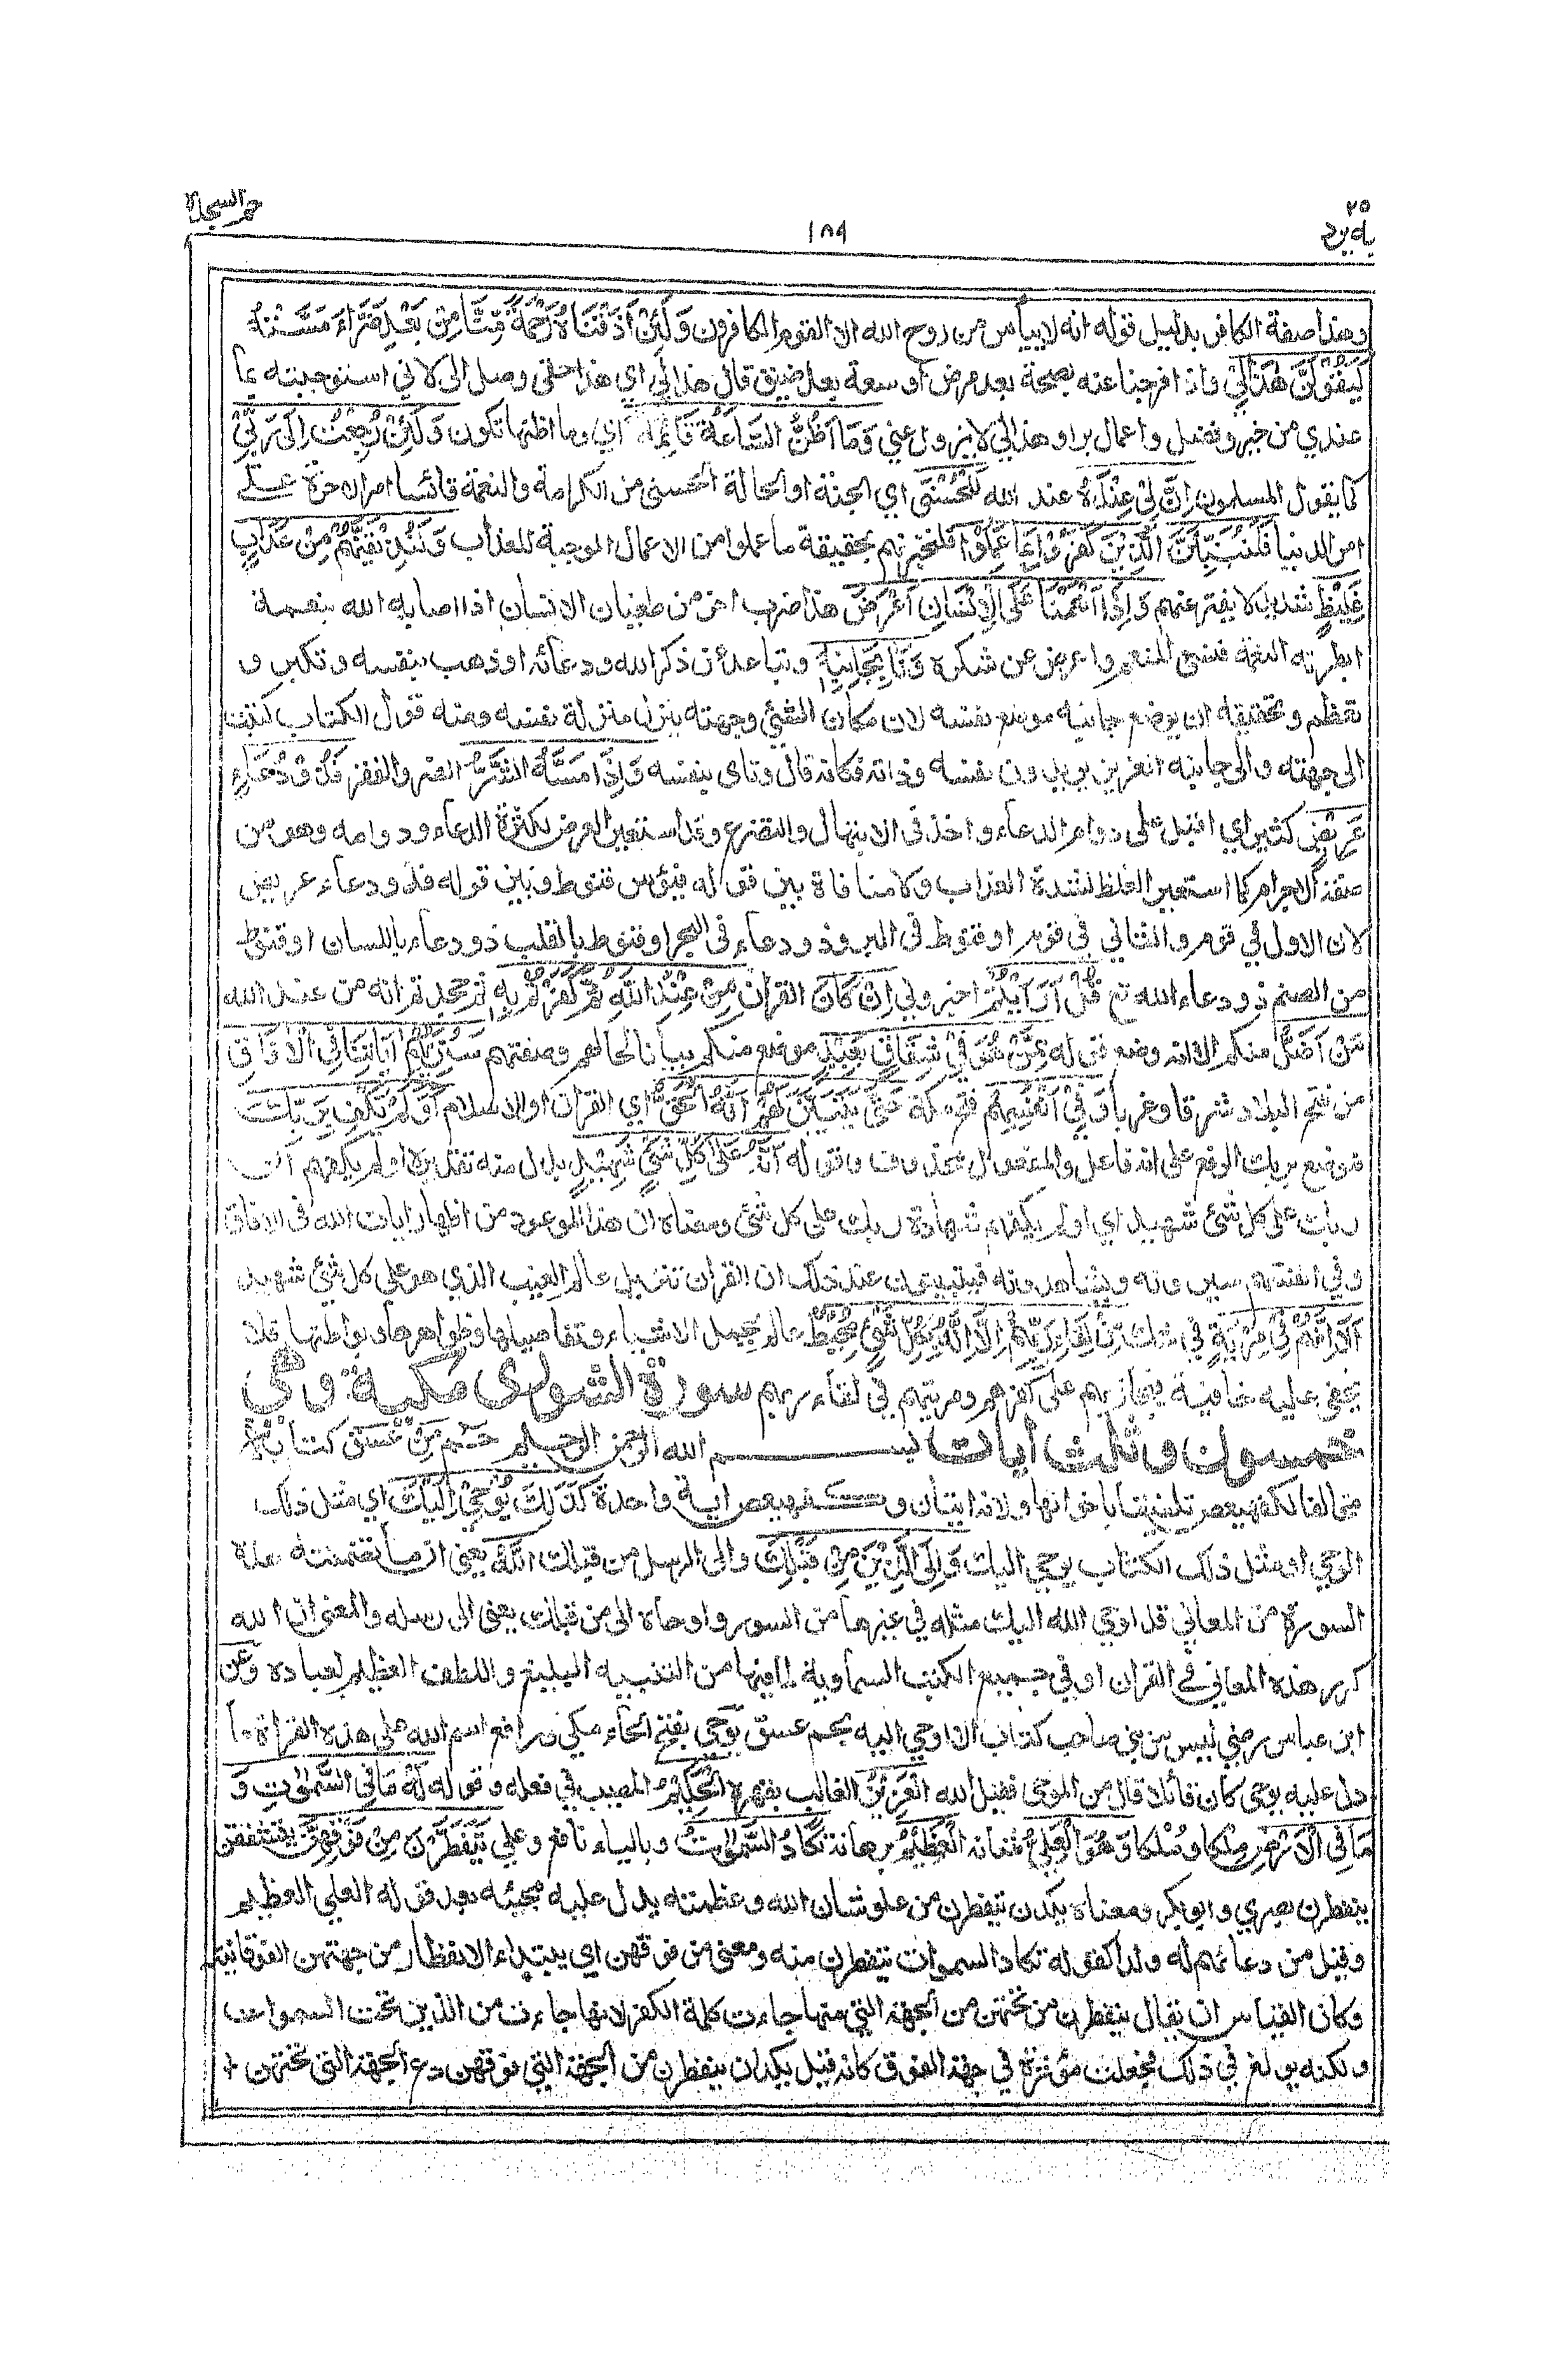 حم السجدة
١٨٩
٢٥
اليه يرد
وهذا صفة الكافر بدليل قوله انه لا ييأس من روح الله الا القوم الكافرون وَلَئِنْ أَذَقْنَاهُ رَحْمَةً مِّنَّا مِنْ بَعْدِ ضَرَّاءَ مَسَّتْهُ
لَيَقُوْلَنَّ هٰذَا لِيْ واذا افرجنا عنه بصحة بعد مرض او سعة بعد ضيق قال هذا لي اي هذا حقي وصل الي لاني استوجبته بما
عندي من خير وفضل واعمال بر او هذا لي لا يزول عني وَمَا أَظُنُّ السَّاعَةَ قَائِمَةً اي وما اظنها تكون وَلَئِنْ رُجِعْتُ إِلَىٰ رَبِّيْ
كما يقول المسلمون إِنَّ لِيْ عِنْدَهٗ عند الله لَلْحُسْنَى اي الجنة او الحالة الحسنى من الكرامة والنعمة قائسا امر الاخرة على
امر الدنيا فَلَنُنَبِّئَنَّ الَّذِيْنَ كَفَرُوْا بِمَا عَمِلُوْا فلنخبرنهم بحقيقة ما عملوا من الاعمال الموجبة للعذاب وَلَنُذِيْقَنَّهُمْ مِنْ عَذَابٍ
غَلِيْظٍ شديد لا يفتر عنهم وَإِذَا أَنْعَمْنَا عَلَى الْإِنْسَانِ أَعْرَضَ هذا ضرب اخر من طغيان الانسان اذا اصابه الله بنعمة
ابطرته النعمة فنسي المنعم واعرض عن شكره وَنَآ بِجَانِبِهٖ وتباعد عن ذكر الله ودعائه او ذهب بنفسه وتكبر و
تعظم وتحقيقه ان يوضع جانبه موضع نفسه لان مكان الشئ وجهته ينزل منزلة نفسه ومنه قول الكتاب كتبت
الى جهته والى جانبه العزيز يريدون نفسه وذاته فكانه قال ونأى بنفسه وَإِذَا مَسَّهُ الشَّرُّ الضر والفقر فَذُوْ دُعَاءٍ
عَرِيْضٍ كثير اي اقبل على دوام الدعاء واخذ في الابتهال والتضرع وقد استعير العرض لكثرة الدعاء ودوامه وهو من
صفة الاجرام كما استعير الغلظ لشدة العذاب ولا منافاة بين قوله فيؤس قنوط وبين قوله فذو دعاء عريض
لان الاول في قوم والثاني في قوم او قنوط في البر وذو دعاء في البحر او قنوط بالقلب ذو دعاء باللسان او قنوط
من الصنم ذو دعاء الله تع قُلْ أَرَأَيْتُمْ اخبروني إِنْ كَانَ القران مِنْ عِنْدِ اللّٰهِ ثُمَّ كَفَرْتُمْ بِهٖ ثم جحدتم انه من عند الله
مَنْ أَضَلُّ منكم الا انه وضع قوله مِمَّنْ هُوَ فِيْ شِقَاقٍ بَعِيْدٍ موضع منكم بيانا لحالهم وصفتهم سَنُرِيْهِمْ اٰيَاتِنَا فِي الْاٰفَاقِ
من فتح البلاد شرقا وغربا وَفِيْ أَنْفُسِهِمْ فتح مكة حَتّٰى يَتَبَيَّنَ لَهُمْ أَنَّهُ الْحَقُّ اي القران او الاسلام أَوَلَمْ يَكْفِ بِرَبِّكَ
موضع بربك الرفع على انه فاعل والمفعول محذوف وقوله أَنَّهٗ عَلٰى كُلِّ شَيْءٍ شَهِيْدٌ بدل منه تقديره اولم يكفهم ان
ربك على كل شئ شهيد اي اولم يكفهم شهادة ربك على كل شئ ومعناه ان هذا الموعود من اظهار ايات الله في الافاق
وفي انفسهم سيرونه ويشاهدونه فيتبينون عند ذلك ان القران تنزيل عالم الغيب الذي هو على كل شئ شهيد
أَلَا إِنَّهُمْ فِيْ مِرْيَةٍ في شك مِّنْ لِّقَاءِ رَبِّهِمْ أَلَا إِنَّهٗ بِكُلِّ شَيْءٍ مُّحِيْطٌ عالم بجمل الاشياء وتفاصيلها وظواهرها وبواطنها فلا
تخفى عليه خافية فيجازيهم على كفرهم ومريتهم في لقاء ربهم سورة الشورى مكية وهي
خمسون وثلث ايات بسم الله الرحمن الرحيم حٰمٓ عٓسٓقٓ كتابة
مخالفا لكهيعص تلفيقا باخواتها ولانه ايتان وكهيعص اية واحدة كَذٰلِكَ يُوْحِيْ إِلَيْكَ اي مثل ذلك
الوحي او مثل ذلك الكتاب يوحي اليك وَإِلَى الَّذِيْنَ مِنْ قَبْلِكَ والى الرسل من قبلك اللّٰهُ يعني ان ما تضمنته هذه
السورة من المعاني قد اوحي الله اليك مثله في غيرها من السور واوحاه الى من قبلك يعني الى رسله والمعنى ان الله
كرر هذه المعاني في القران او في جميع الكتب السماوية لما فيها من التنبيه البليغ واللطف العظيم لعباده وعن
ابن عباس رضي ليس من نبي صاحب كتاب الا اوحي اليه بحم عسق يُوْحَى بفتح الحاء مكي ورافع اسم الله على هذه القراءة ما
دل عليه يوحى كان قائلا قال من الموحي فقيل الله الْعَزِيْزُ الغالب بقهره الْحَكِيْمُ المصيب في فعله وقوله لَهٗ مَا فِي السَّمٰوٰتِ وَ
مَا فِي الْأَرْضِ ملكا وملكا وَهُوَ الْعَلِيُّ شانه الْعَظِيْمُ برهانه تَكَادُ السَّمٰوٰتُ وبالياء نافع وعلي يَتَفَطَّرْنَ مِنْ فَوْقِهِنَّ يتشققن
ينفطرن بصري وابو بكر ومعناه يكدن يتفطرن من علو شان الله وعظمته يدل عليه مجيئه بعد قوله العلي العظيم
وقيل من دعائهم له ولدا كقوله تكاد السموات يتفطرن منه ومعنى من فوقهن اي يبتدأ الانفطار من جهتهن الفوقانية
وكان القياس ان يقال ينفطرن من تحتهن من الجهة التي منها جاءت كلمة الكفر لانها جاءت من الذين تحت السموات
ولكنه بولغ في ذلك فجعلت مؤثرة في جهة الفوق كانه قيل يكدن ينفطرن من الجهة التي فوقهن دع الجهة التي تحتهن +